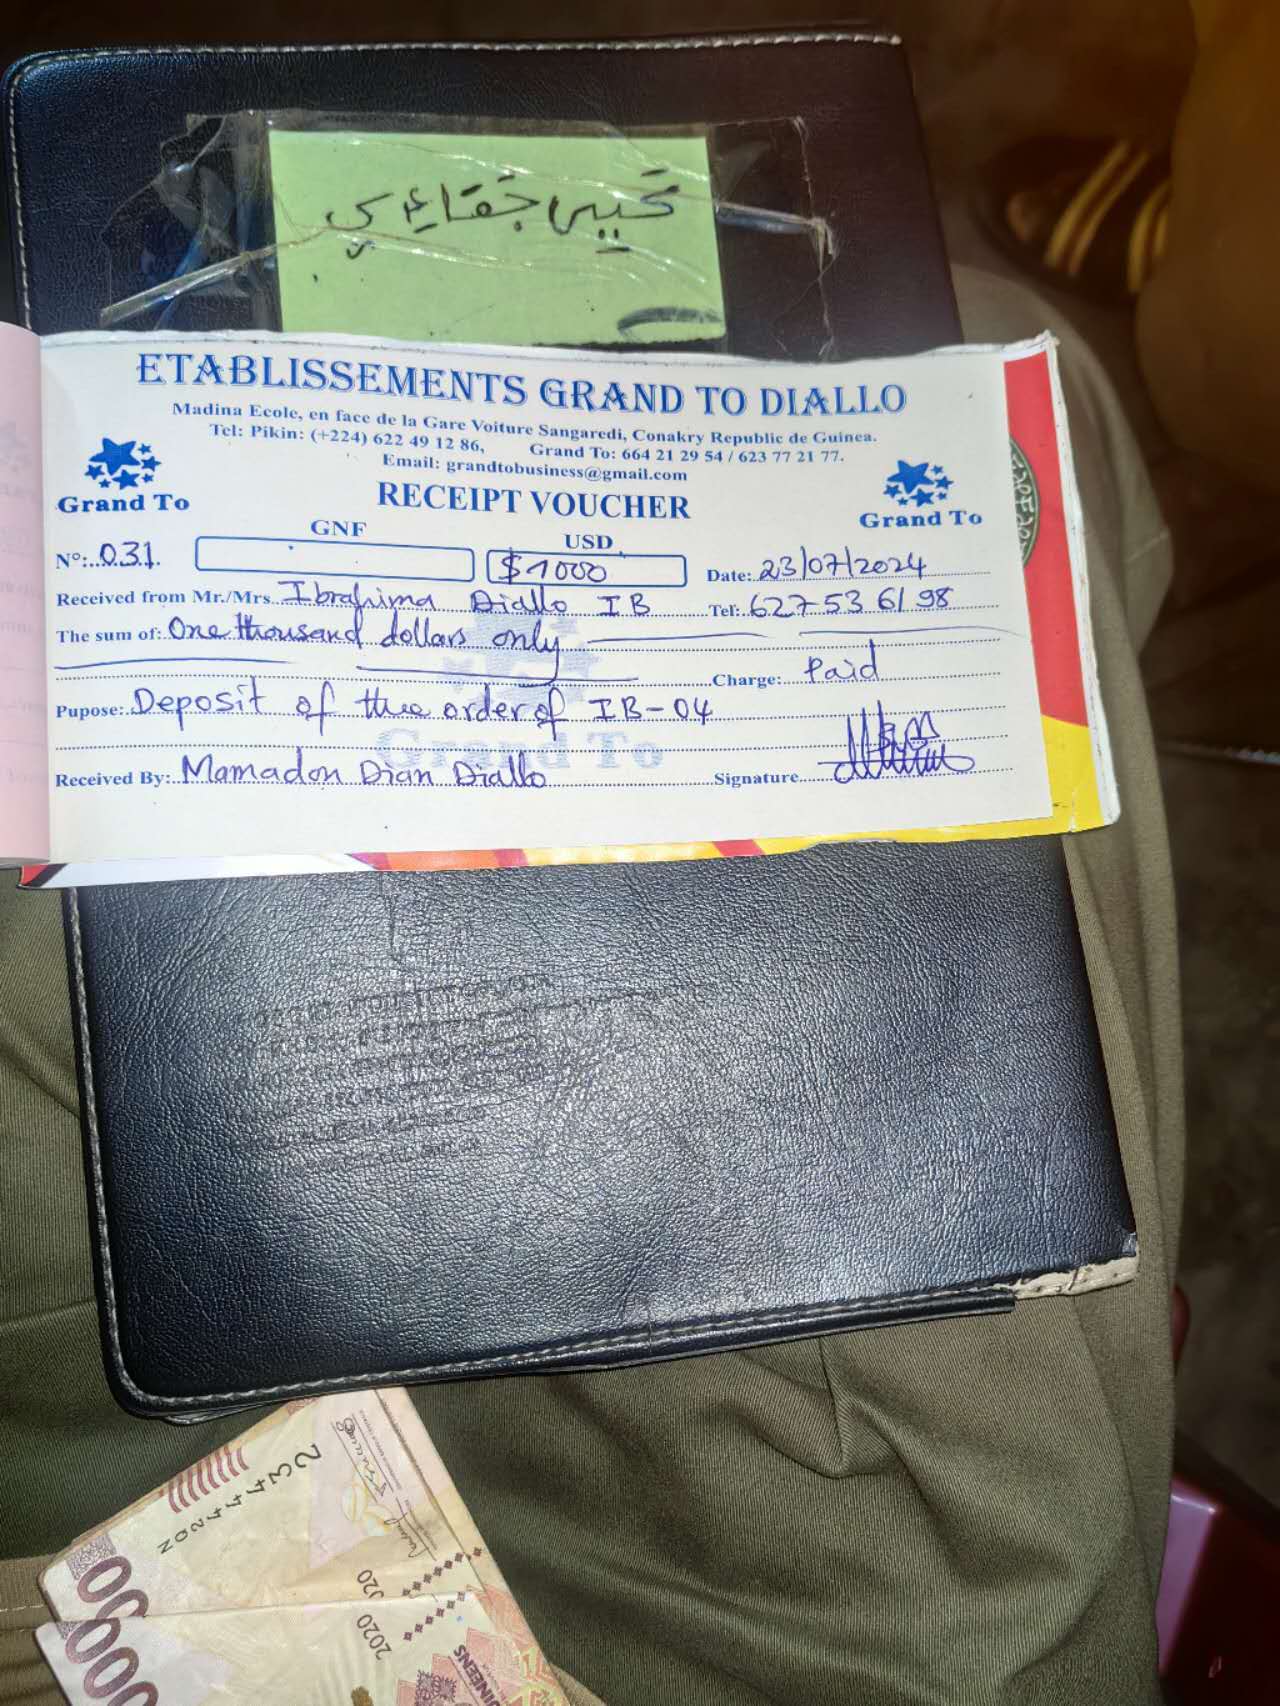 ETABLISSEMENTS GRAND TO DIALLO
Madina Ecole, en face de la Gare Voiture Sangaredi, Conakry Republic de Guinea.
Tel: Pikin: (+224) 622 49 12 86, Grand To: 664 21 29 54 / 623 77 21 77.
Email: grandtobusiness@gmail.com
Grand To
RECEIPT VOUCHER
Grand To
GNF
USD
N°: 031.
$1000
Date: 23/07/2024
Received from Mr./Mrs Ibrahima Diallo IB Tel: 627 53 61 98
The sum of: One thousand dollars only
Charge: Paid
Pupose: Deposit of the order of IB-04
Grand To
Received By: Mamadou Dian Diallo Signature
2020
2020